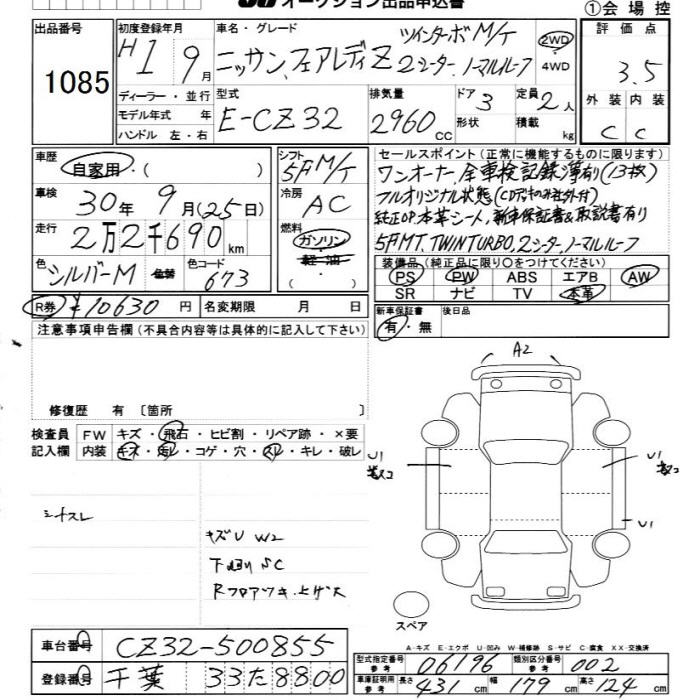 オークション出品申込書
①会場控
出品番号
1085
初度登録年月
H1年9月
車名・グレード
ニッサン フェアレディZ ツインターボM/T
2シーター ノーマルルーフ
2WD
・
4WD
評価点
3.5
外装 内装
C C
ディーラー・並行
モデル年式 年
ハンドル 左・右
型式
E-CZ32
排気量
2960cc
ドア 3
形状
定員 2人
積載 kg
車歴
自家用・( )
車検
30年9月(25日)
走行
2万2千690km
色
シルバーM
色替
色コード
673
シフト
5F M/T
冷房
AC
燃料
ガソリン
・
軽油
・
( )
セールスポイント(正常に機能するものに限ります)
ワンオーナー、全車検記録簿有り(13枚)
フルオリジナル状態(CDデッキのみ社外付)
純正OP本革シート、新車保証書&取説書有り
5FMT、TWINTURBO、2シーター、ノーマルルーフ
装備品(純正品に限り○をつけてください)
PS PW ABS エアB AW
SR ナビ TV 本革
新車保証書
有・無
後日品
R券 ¥10630円
名変期限 月 日
注意事項申告欄(不具合内容等は具体的に記入して下さい)
修復歴 有 〔箇所 〕
検査員
記入欄
FW キズ・飛石・ヒビ割・リペア跡・×要
内装 キズ・汚レ・コゲ・穴・スレ・キレ・破レ
シートスレ
キズU W2
下廻りSC
A2
U1
U1
U1
スペア
A-キズ E-エクボ U-凹み W-補修跡 S-サビ C-腐食 XX-交換済
車台番号
CZ32-500855
登録番号
千葉 33た8800
型式指定番号
参考
06196
類別区分番号
参考
002
車庫証明用
参考
長さ 431cm
幅 179cm
高さ 124cm